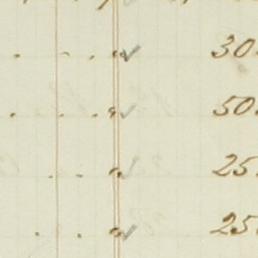 30
50
25
25